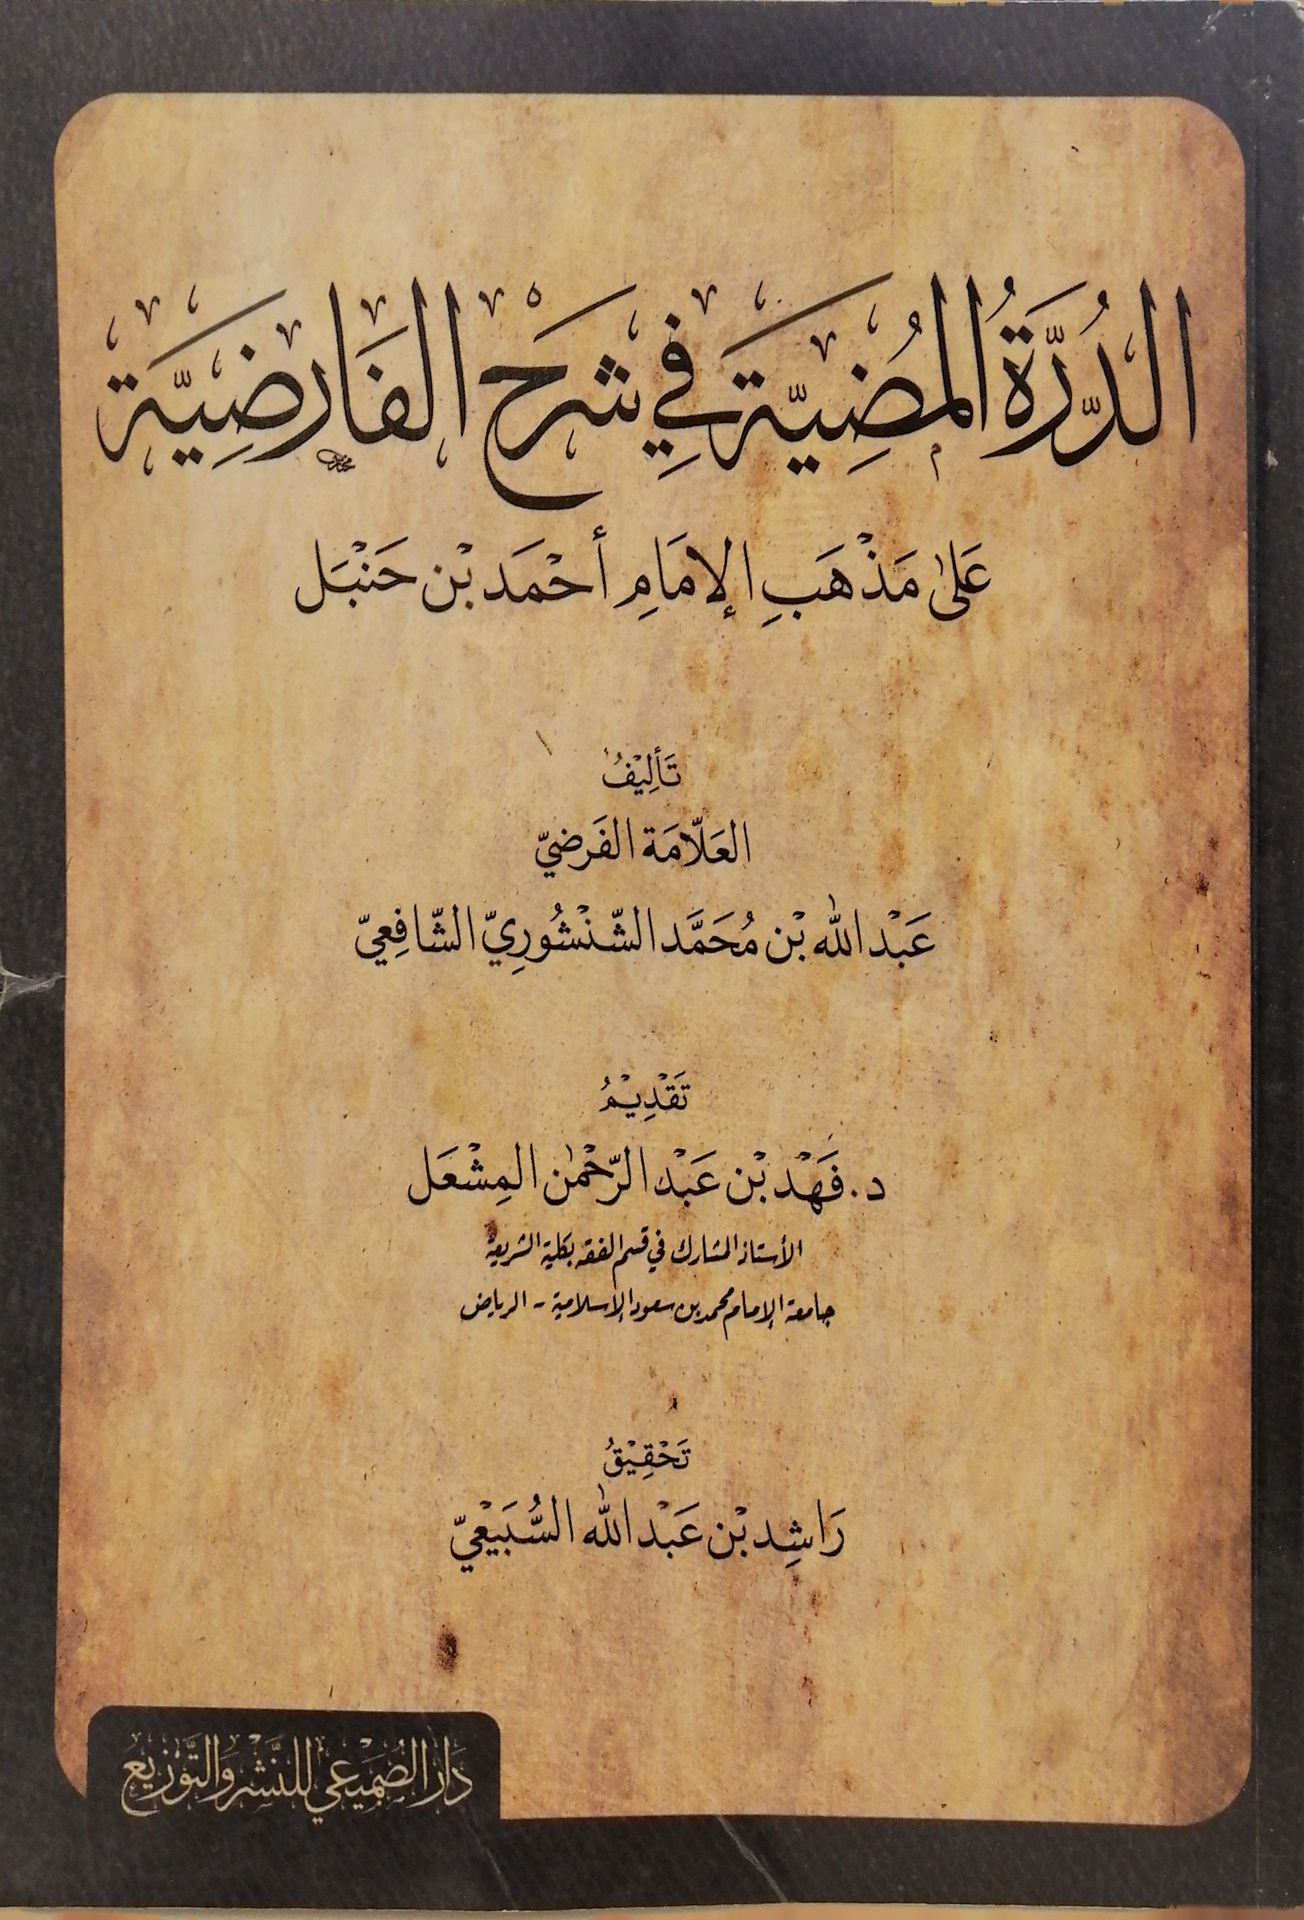 الدُّرَّةُ المُضِيَّة فِي شَرْح الفَارِضِيَّة
عَلَىٰ مَذْهَبِ الإِمَامِ أحْمَد بْن حَنْبَل
تَأْلِيْفُ
العَلَّامَة الفَرضيّ
عَبْد اللّٰه بْن مُحَمَّد الشّنْشُورِيّ الشّافِعيّ
تَقْدِيْمُ
د. فَهْد بْن عَبْد الرّحْمٰن المِشْعَل
الأستاذ المشارك في قسم الفقه بكلية الشريعة
جامعة الإمام محمد بن سعود الإسلامية - الرياض
تَحْقِيْقُ
رَاشِد بْن عَبْد اللّٰه السُّبَيْعيّ
دَار الصُّمَيْعِي للنَّشْر وَالتَّوْزِيْع